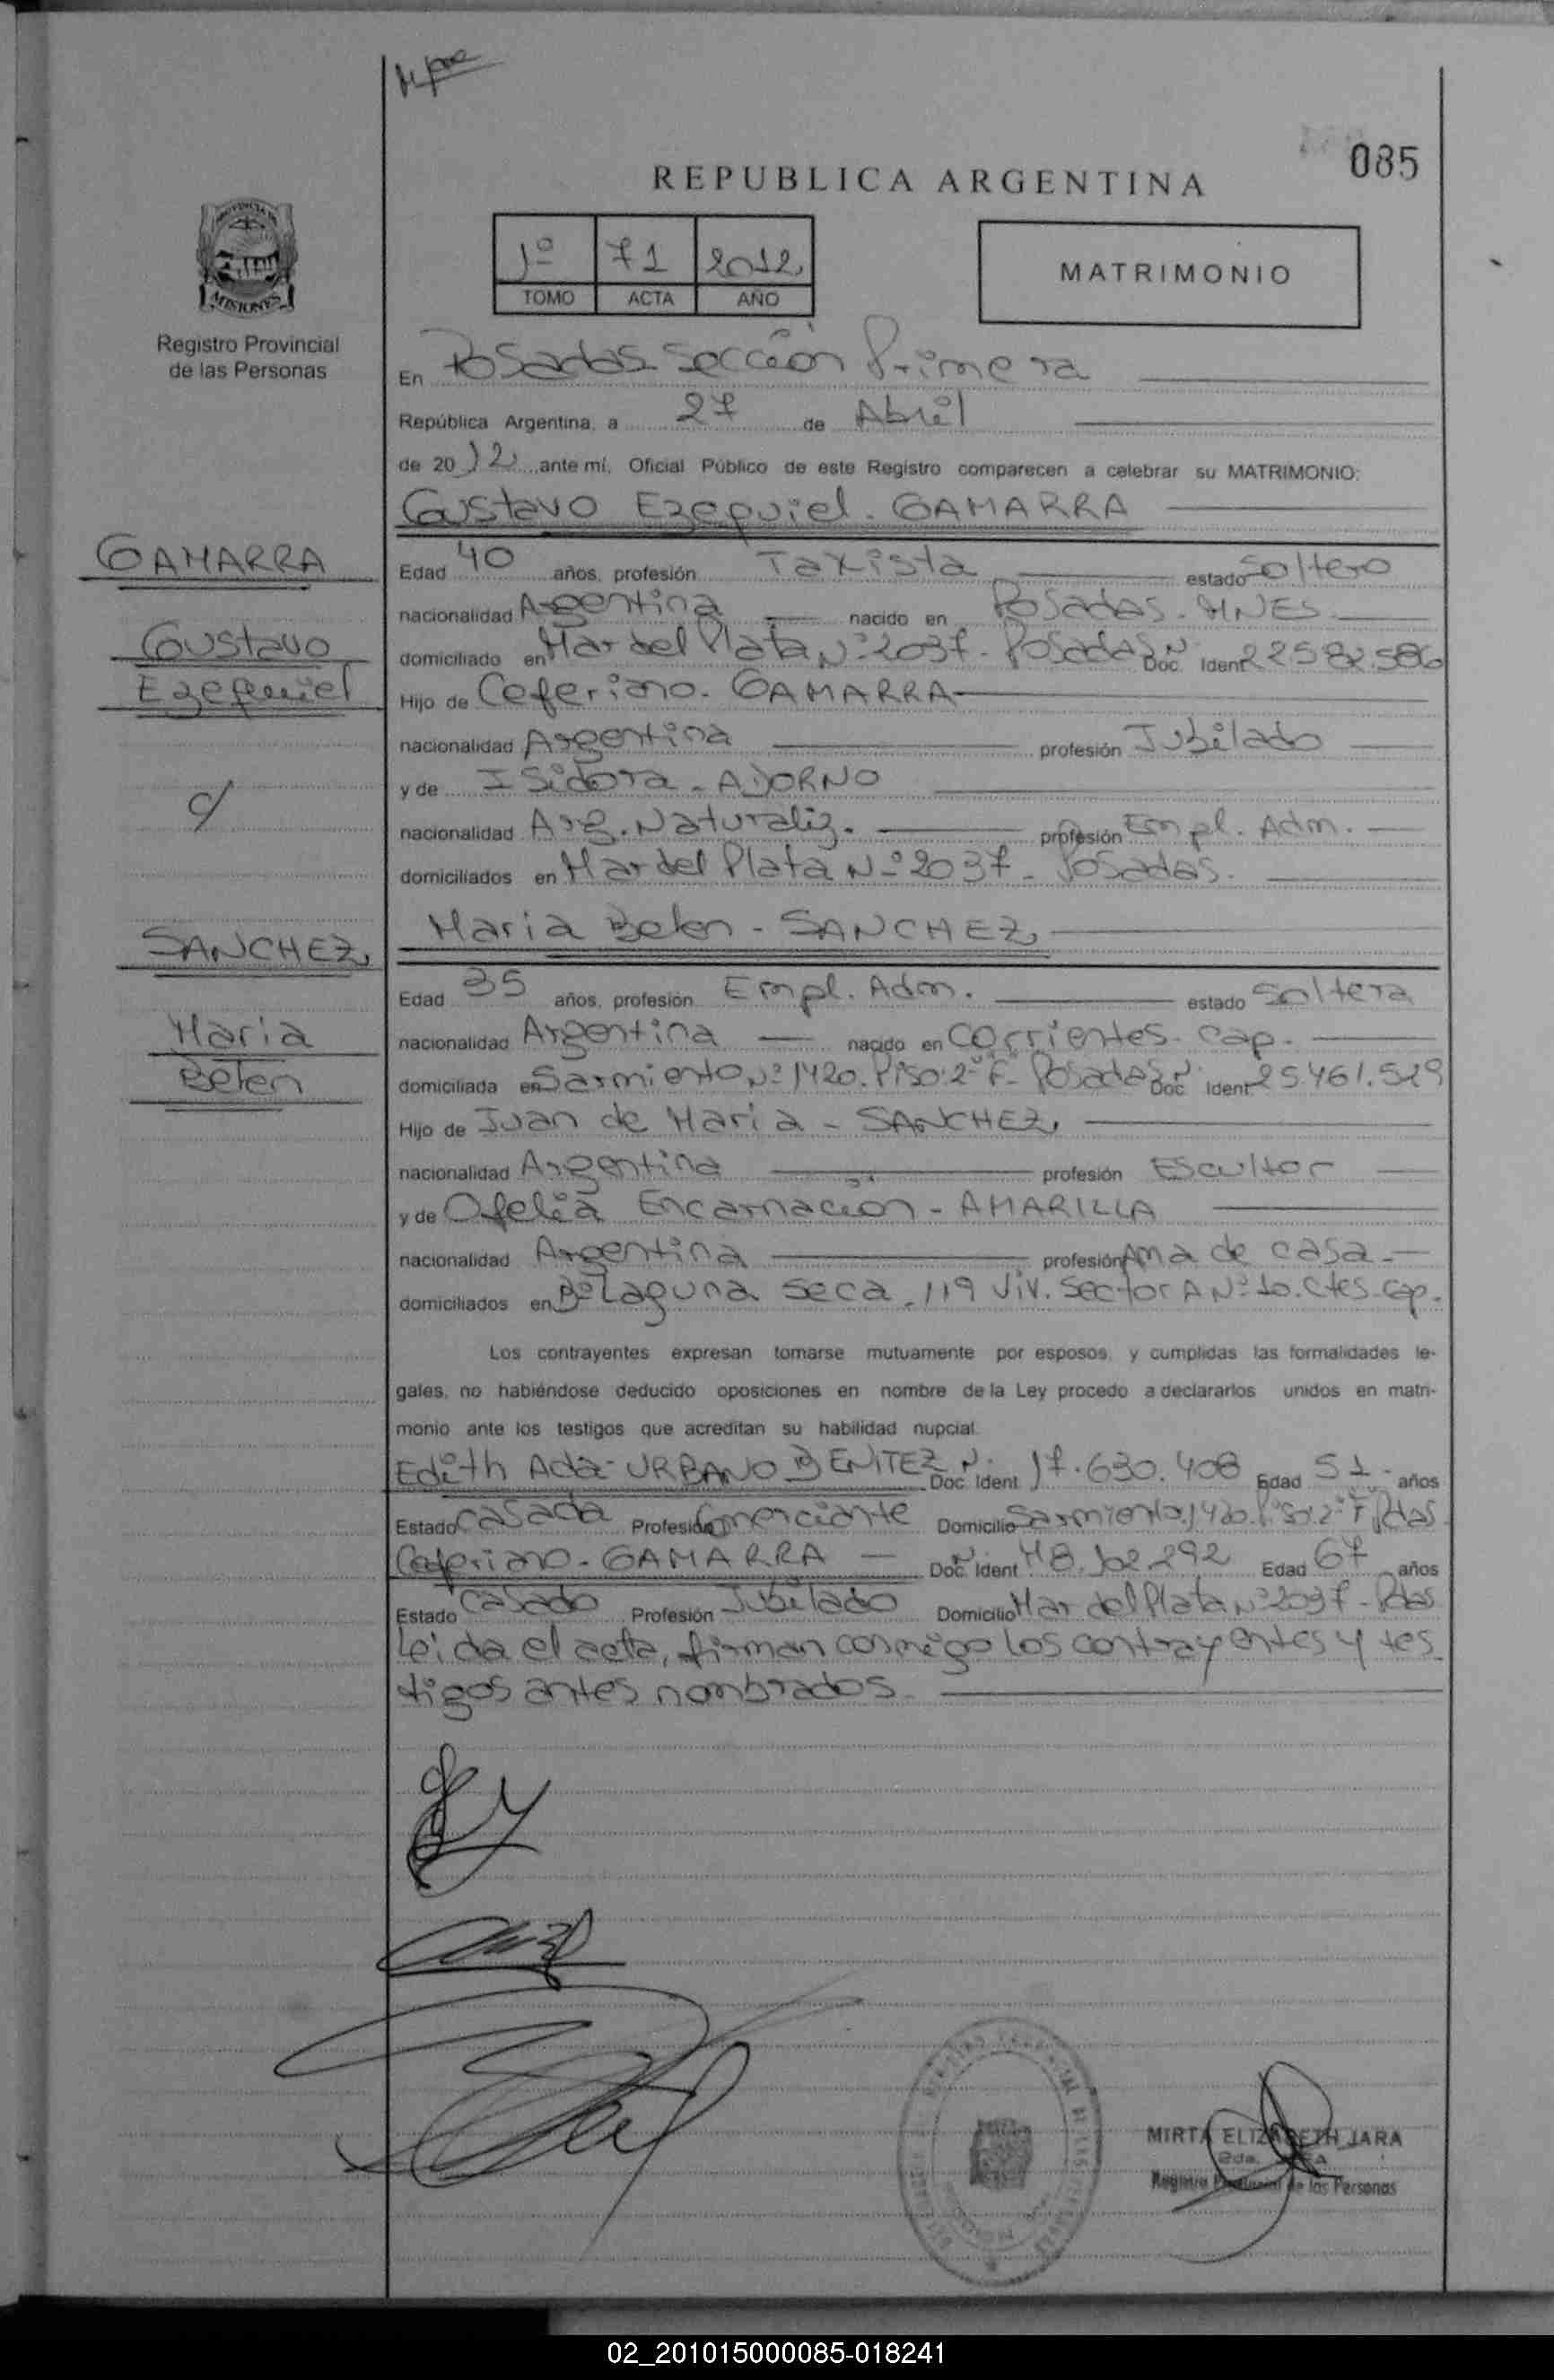 085
REPUBLICA ARGENTINA
1º 71 2012
TOMO ACTA AÑO
MATRIMONIO
PROVINCIA DE
MISIONES
Registro Provincial
de las Personas
En Posadas Sección Primera
República Argentina, a 27 de Abril
de 2012 ante mí, Oficial Público de este Registro comparecen a celebrar su MATRIMONIO:
Gustavo Ezequiel - GAMARRA
GAMARRA
Gustavo
Ezequiel
c/
SANCHEZ
Maria
Belen
Edad 40 años, profesión Taxista estado Soltero
nacionalidad Argentina nacido en Posadas - MNES
domiciliado en Mar del Plata Nº 2037 - Posadas Nº Doc. Ident 22582586
Hijo de Ceferiano - GAMARRA
nacionalidad Argentina profesión Jubilado
y de Isidora - ADORNO
nacionalidad Arg. Naturaliz. profesión Empl. Adm.
domiciliados en Mar del Plata Nº 2037 - Posadas.
Maria Belen - SANCHEZ
Edad 35 años, profesión Empl. Adm. estado Soltera
nacionalidad Argentina nacido en Corrientes - Cap.
domiciliada en Sarmiento Nº 1420. Piso: 2º F - Posadas Nº Doc. Ident 25.461.529
Hijo de Juan de Maria - SANCHEZ
nacionalidad Argentina profesión Escultor
y de Ofelia Encarnación - AMARILLA
nacionalidad Argentina profesión Ama de casa -
domiciliados en Bº Laguna Seca, 119 Viv. Sector A Nº 10. Ctes. Cap.
Los contrayentes expresan tomarse mutuamente por esposos, y cumplidas las formalidades le-
gales, no habiéndose deducido oposiciones en nombre de la Ley procedo a declararlos unidos en matri-
monio ante los testigos que acreditan su habilidad nupcial.
Edith Ada - URBANO BENITEZ Nº Doc. Ident 17.630.408 Edad 51 años
Estado Casada Profesión Comerciante Domicilio Sarmiento 1420. Piso: 2º F Pdas
Ceferiano - GAMARRA Nº Doc. Ident M 8.102.292 Edad 67 años
Estado Casado Profesión Jubilado Domicilio Mar del Plata Nº 2037 - Pdas
Leida el acta, firman conmigo los contrayentes y tes
tigos antes nombrados.
MIRTA ELIZABETH JARA
Registro Provincial de las Personas
02_201015000085-018241